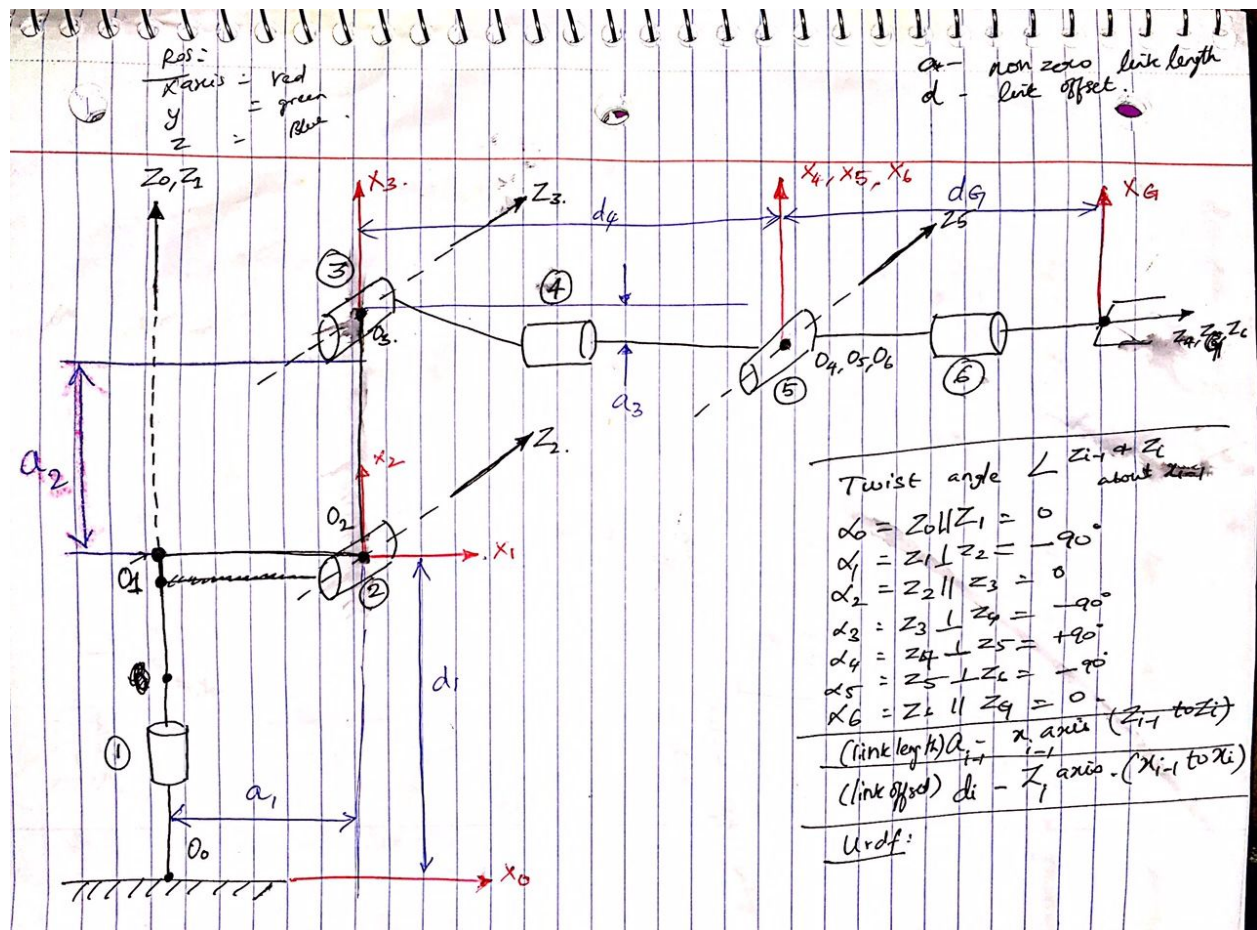 Ros:
X axis = red
y = green
z = Blue.
a - non zero link length
d - link offset.
Z0, Z1
X3.
Z3.
d4
X4, X5, X6
dG
XG
Z5
3
4
O3.
a3
5
O4, O5, O6
6
a2
X2
Z2.
O2
X1
O1
2
d1
1
a1
O0
X0
Twist angle ∠ Zi-1 & Zi
about
α0 = Z0 || Z1 = 0
α1 = Z1 ⊥ Z2 = -90°
α2 = Z2 || Z3 = 0
α3 = Z3 ⊥ Z4 = -90°
α4 = Z4 ⊥ Z5 = +90°
α5 = Z5 ⊥ Z6 = -90°
α6 = Z6 || ZG = 0
(link length) ai-1 - xi-1 axis (Zi-1 to Zi)
(link offset) di - Zi axis. (xi-1 to xi)
Urdf: